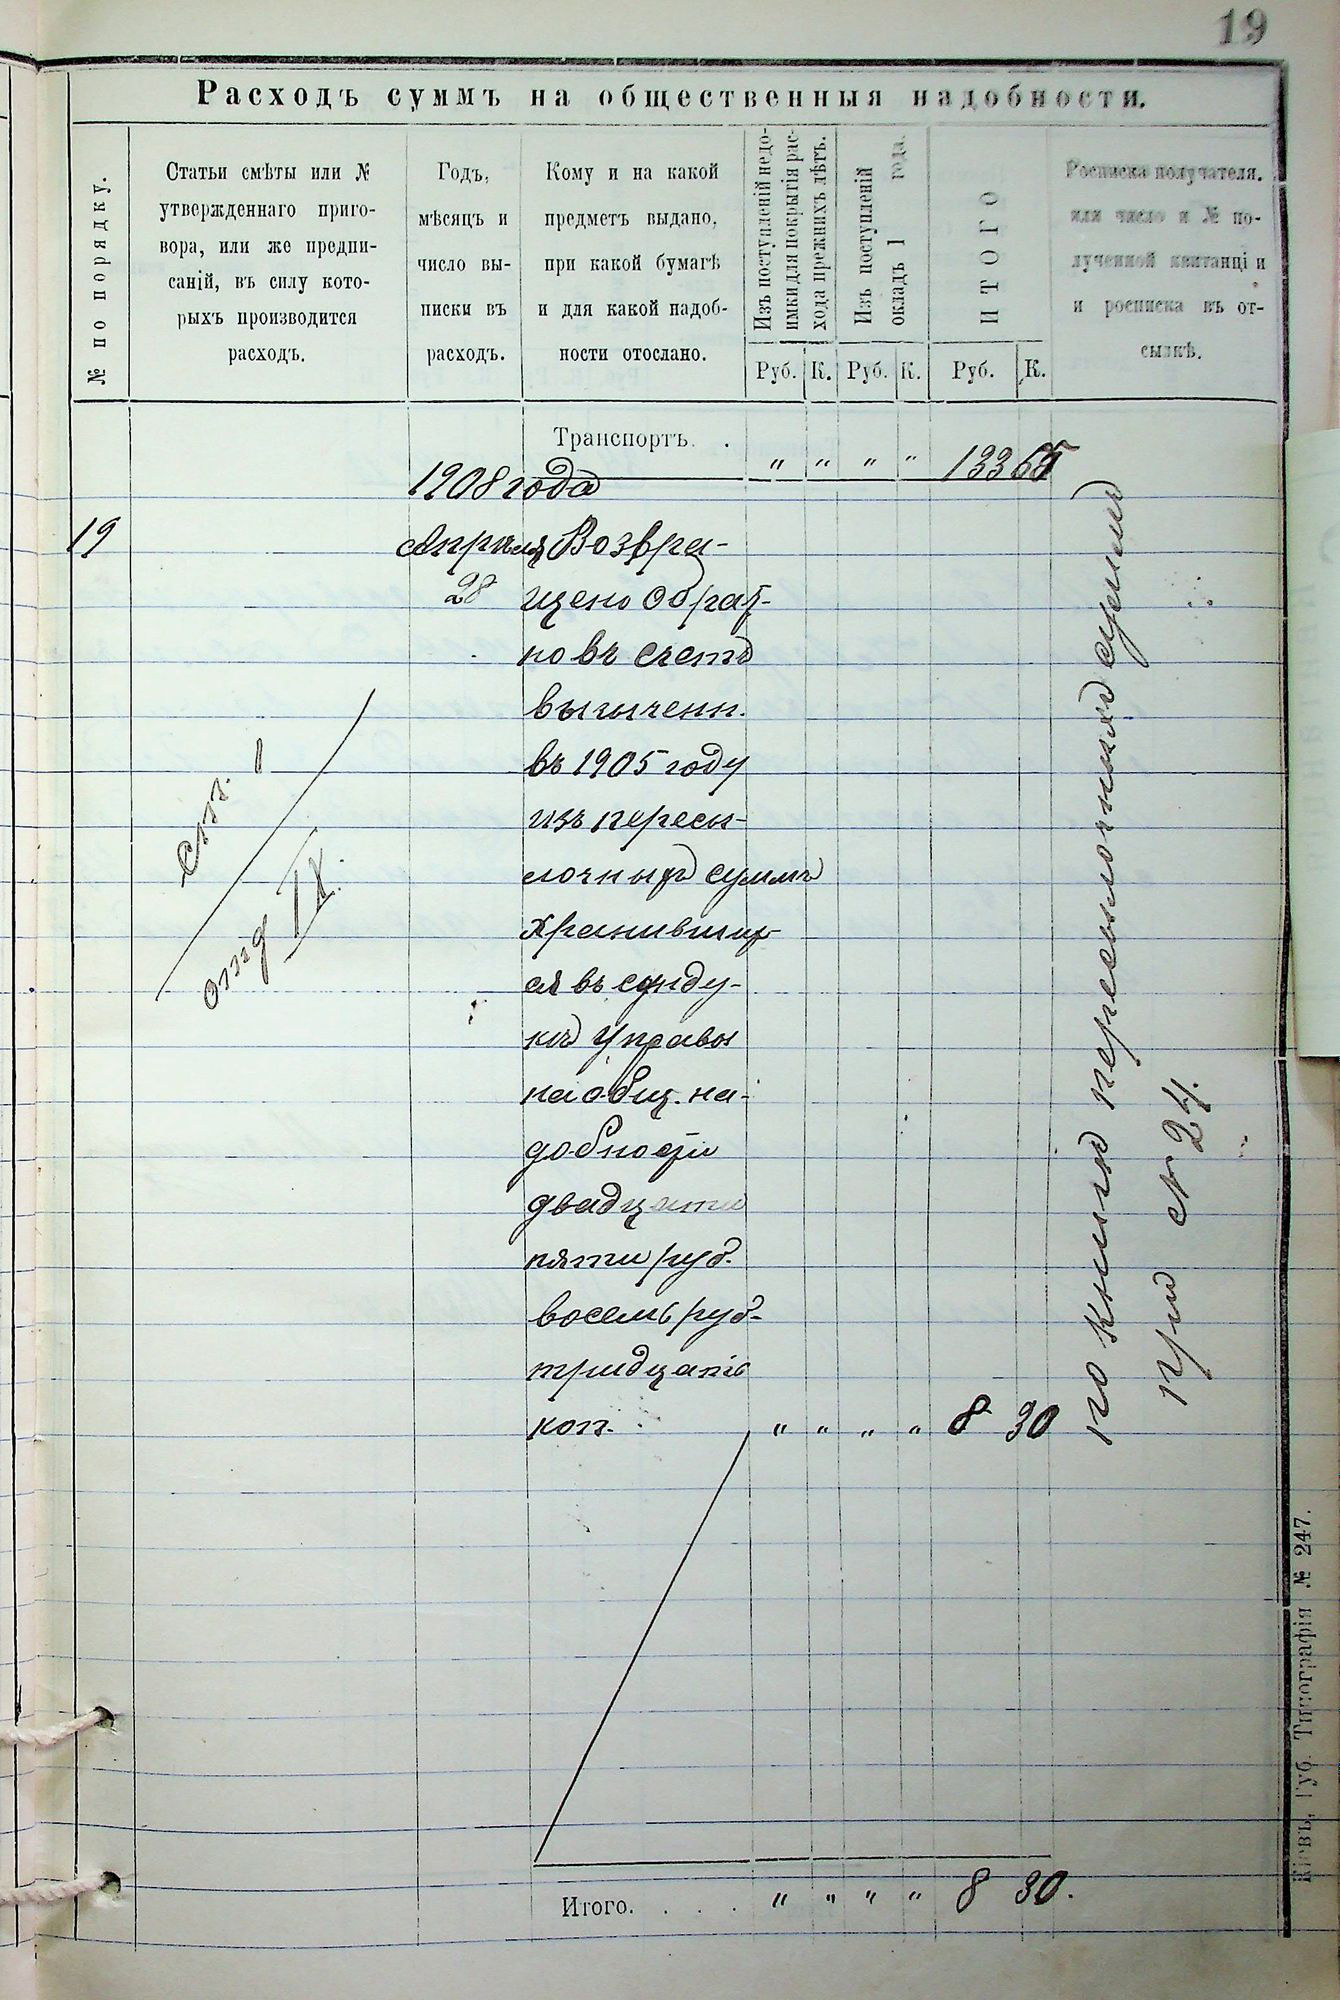 19
Расходъ суммъ на общественныя надобности.
№ по порядку.
Статьи смѣты или №
утвержденнаго приго-
вора, или же предпи-
саній, въ силу кото-
рыхъ производится
расходъ.
Годъ,
мѣсяцъ и
число вы-
писки въ
расходъ.
Кому и на какой
предметъ выдано,
при какой бумагѣ
и для какой надоб-
ности отослано.
Изъ поступленій недо-
имки для покрытія рас-
хода прежнихъ лѣтъ.
Изъ поступленій
окладъ 1 года.
ИТОГО
Росписка получателя.
или число и № по-
лученной квитанціи
и росписка въ от-
сылкѣ.
Руб. К. Руб. К. Руб. К.
Транспортъ. . " " " " 133 65
1908 года
19 Апрѣля Возвра-
28 щено обрат-
но въ счетъ
въ 1905 году
изъ пересы-
лочныхъ суммъ
хранивших-
ся въ сунду-
кѣ Управы
на общ. на-
добности
двадцати
пяти руб.
восемь руб.
тридцать
коп. " " " " 8 30
ст. 1
отд IX.
по книгѣ пересылочныхъ суммъ
при ст 24.
Итого. . . . " " " " 8 30.
Кіевъ, Губ. Типографія № 247.